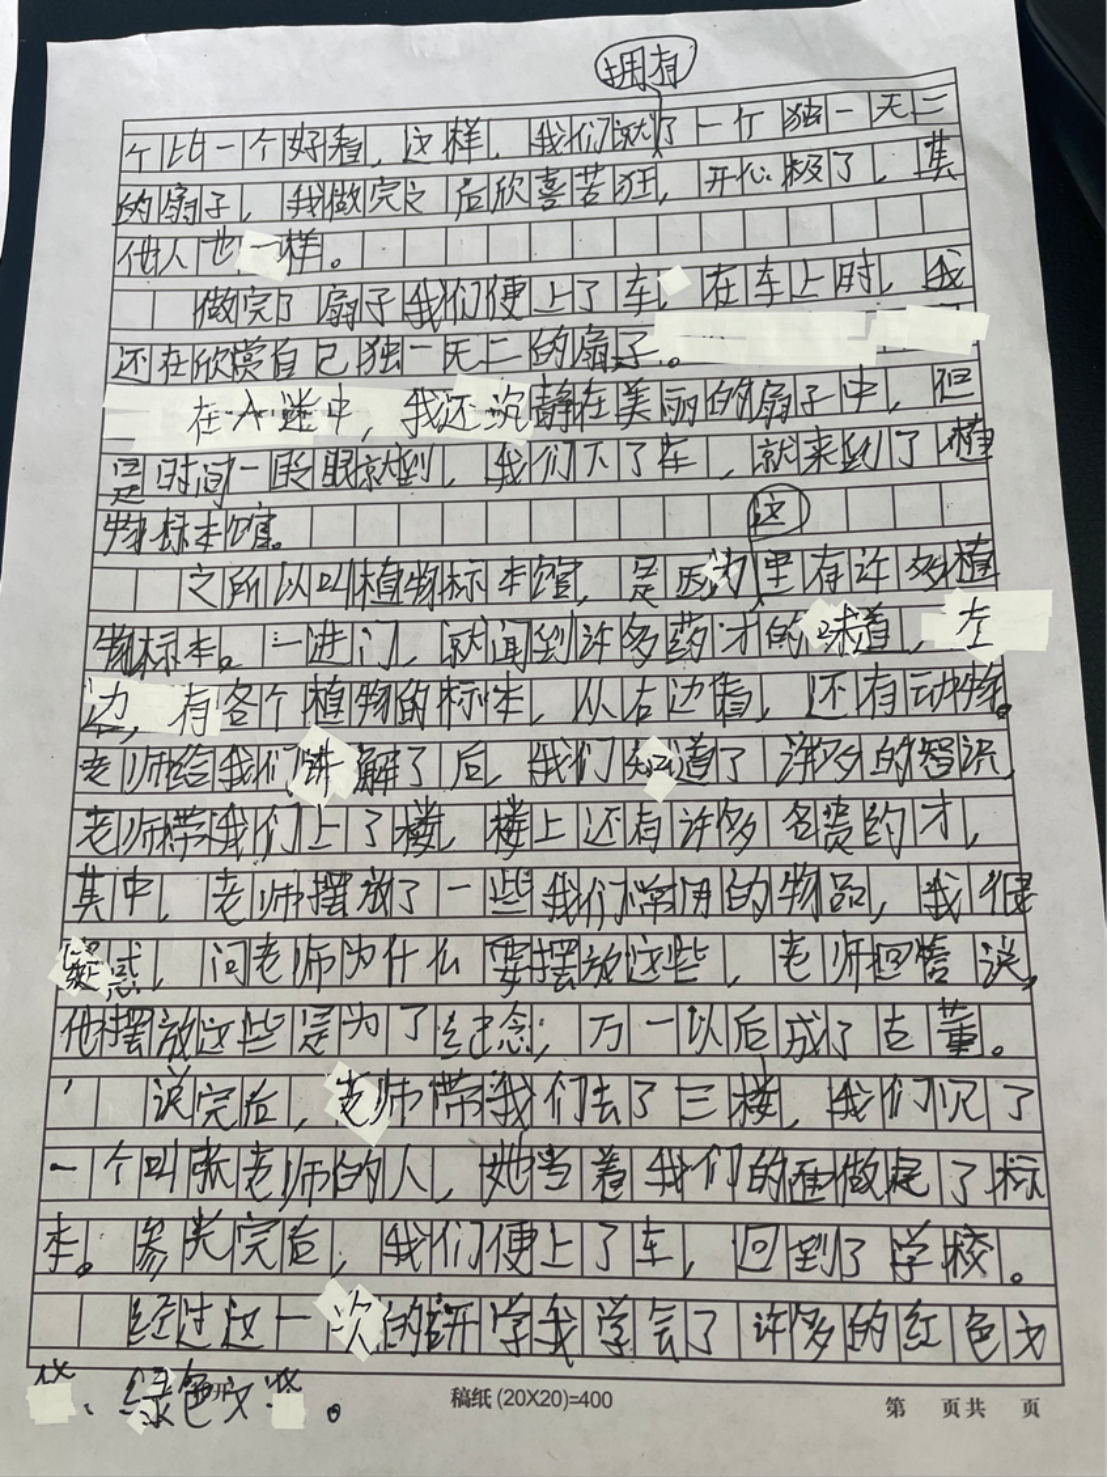 拥有
个比一个好看，这样，我们就了一个独一无二
的扇子，我做完之后欣喜苦狂，开心极了，其
他人也一样。
做完了扇子我们便上了车，在车上时，我
还在欣赏自己独一无二的扇子。
在入迷中，我还沉静在美丽的扇子中，但
是时间一眨眼就到，我们下了车，就来到了植
物标本馆。
这
之所以叫植物标本馆，是因为里有许多植
物标本。一进门，就闻到许多药才的味道，左
边，有各个植物的标本，从右边看，还有动物。
老师给我们讲解了后，我们知道了许多的智识，
老师带我们上了楼，楼上还有许多名贵药才，
其中，老师摆放了一些我们常用的物品，我很
疑惑，问老师为什么要摆放这些，老师回答说，
他摆放这些是为了纪念，万一以后成了古董。
说完后，老师带我们去了三楼，我们见了
一个叫张老师的人，她当着我们的面做起了标
本。参关完后，我们便上了车，回到了学校。
经过这一次的研学我学会了许多的红色文
化、绿色文化。
稿纸(20X20)=400
第 页共 页